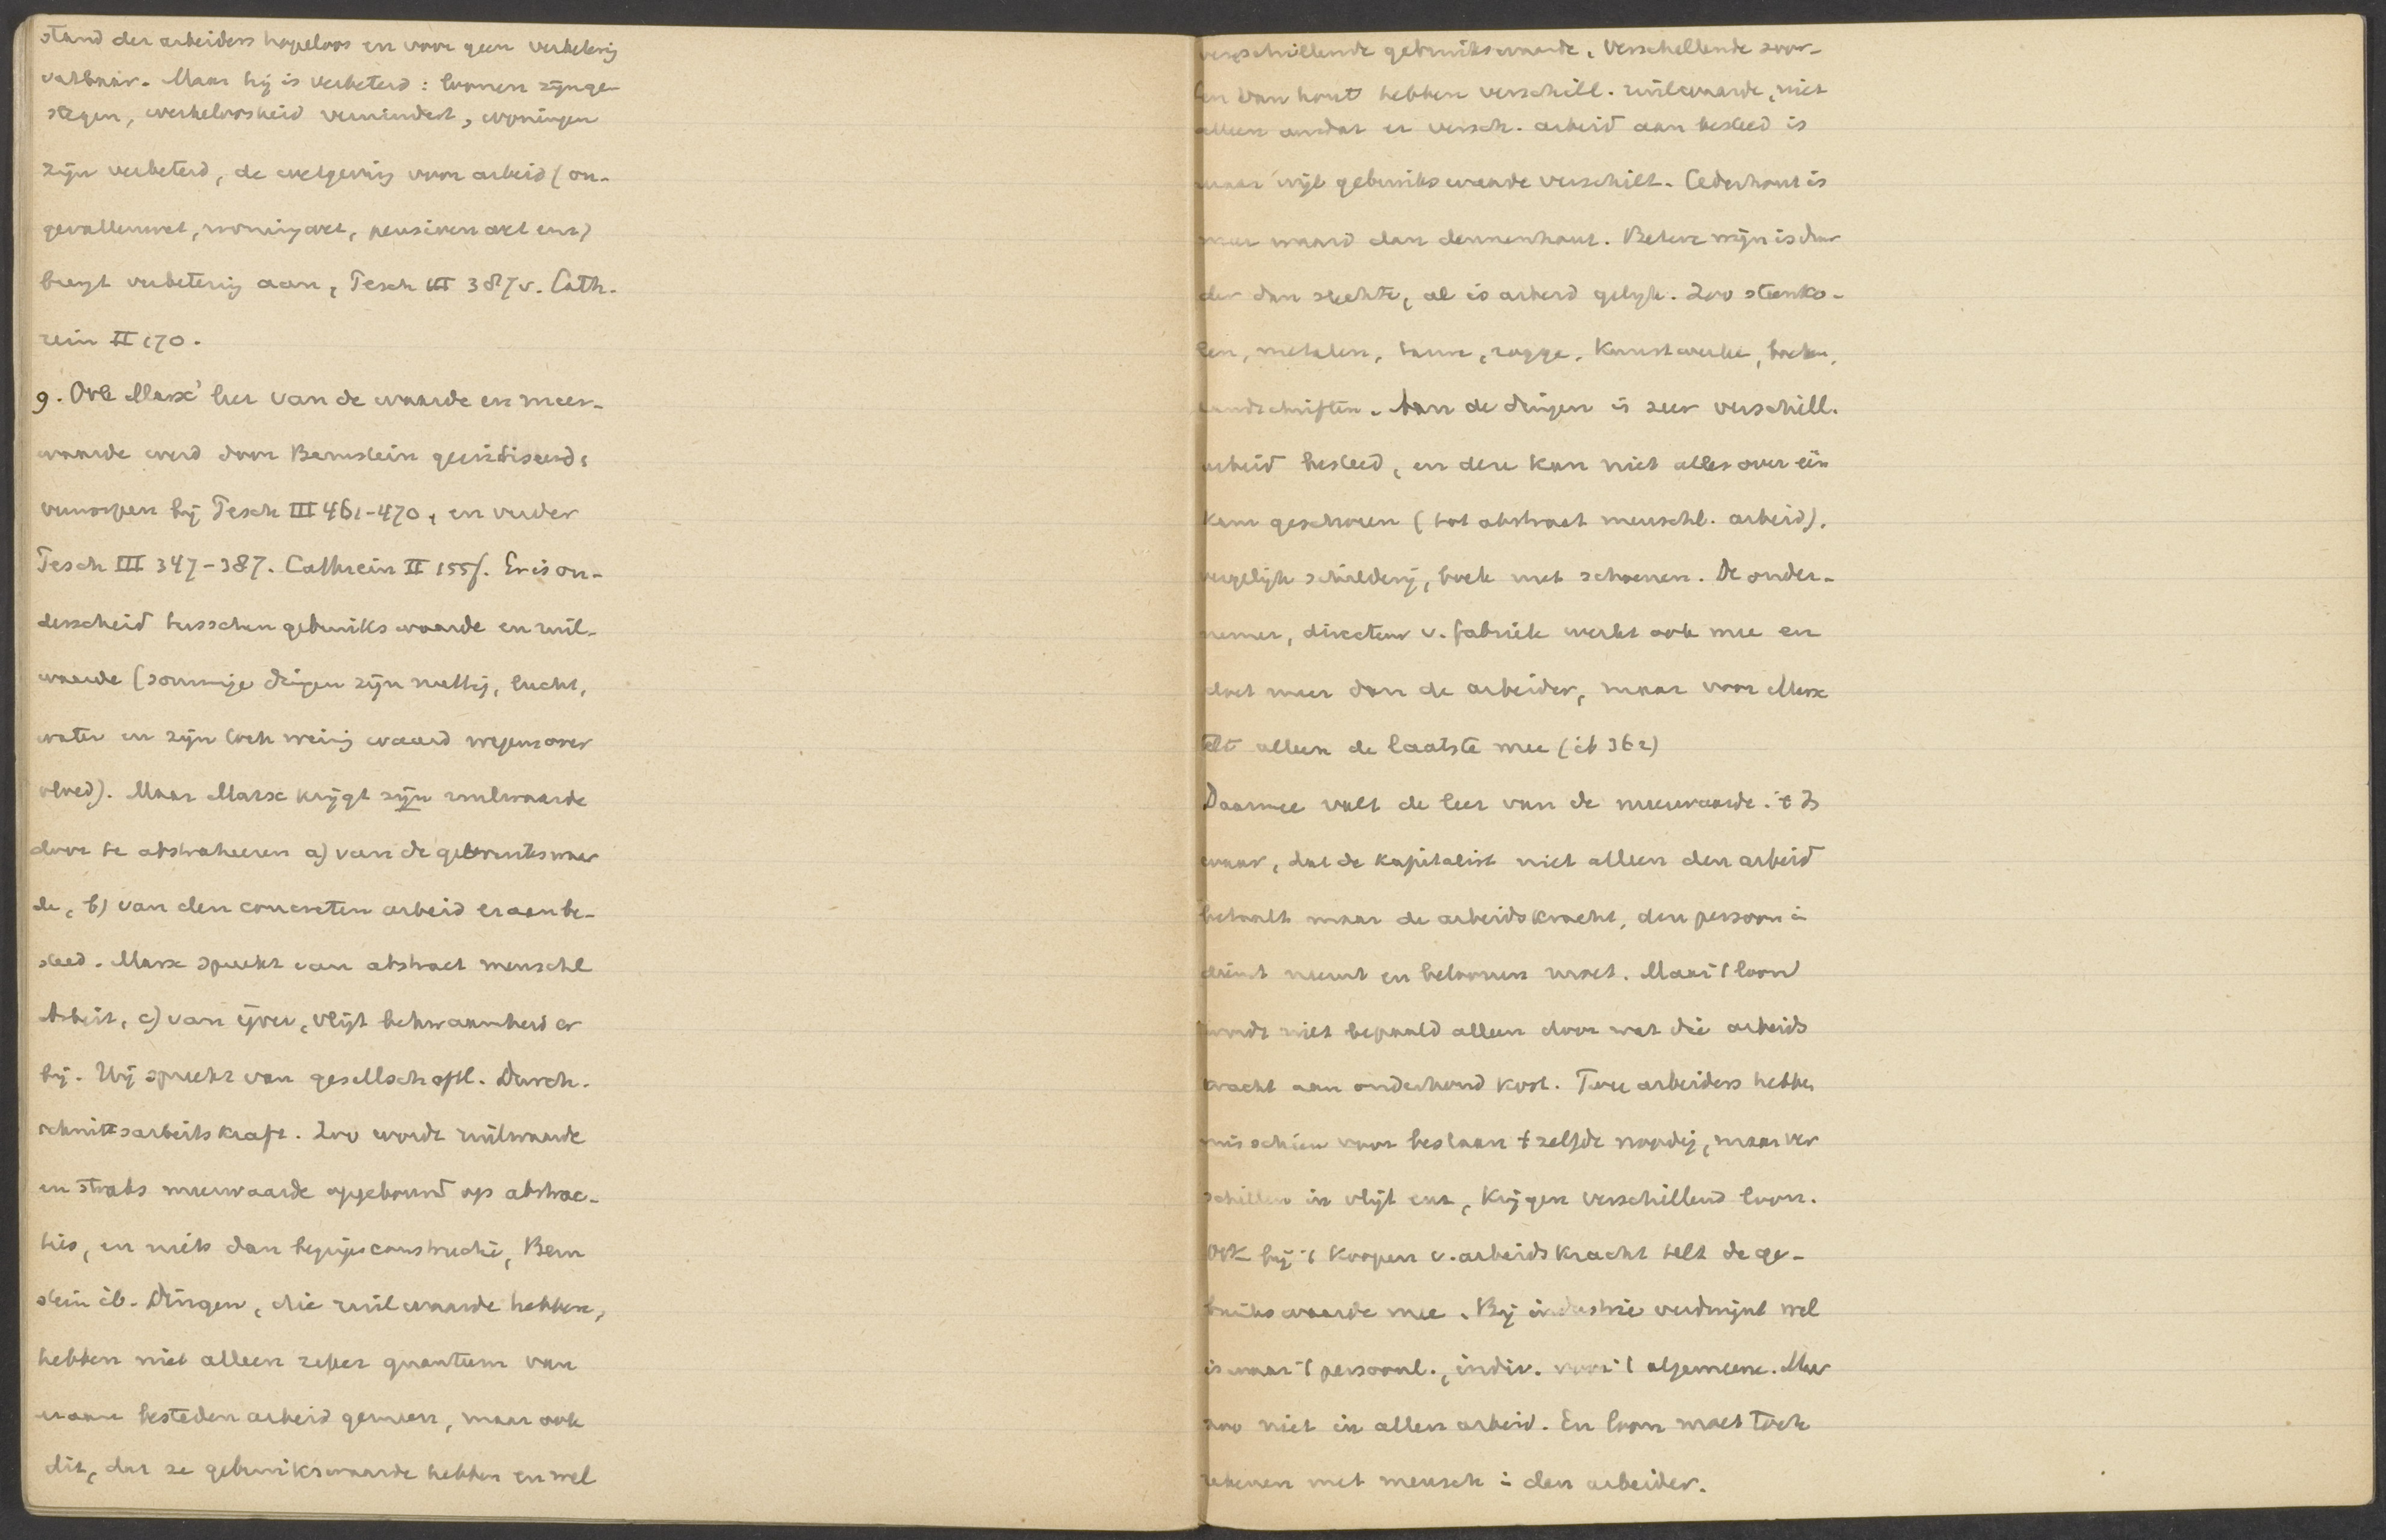 stand der arbeiders hopeloos en voor geen verbeterig
vatbaar. Maar hij is verbeterd: loonen zijn ge-
stegen, werkeloosheid vermindert, woningen
zijn verbeterd, de wetgeving voor arbeid (on-
gevallenwet, woningwet, pensioenwet enz)
brengt verbetering aan, Pesch III 387v. Cath-
rein II 170.
9. Ook Marx' leer van de waarde en meer-
waarde werd door Bernstein gecritiseerd,
verworpen bij Pesch III 461-470, en verder
Pesch III 347-387. Cathrein II 155f. Er is on-
derscheid tusschen gebruikswaarde en ruil-
waarde (sommige dingen zijn nuttig, lucht,
water en zijn toch weinig waard wegens over
vloed). Maar Marx krijgt zijn ruilwaarde
door te abstraheeren a) van de gebruikswaar
de, b) van den concreten arbeid eraan be-
steed. Marx spreekt van abstract menschl
Arbeit, c) van ijver, vlijt bekwaamheid er
bij. Hij spreekt van gesellschaftl. Durch-
schnittsarbeitskraft. Zoo wordt ruilwaarde
en straks meerwaarde opgebouwd op abstrac-
ties, en niets dan begripsconstructie, Bern
stein ib. Dingen, die ruilwaarde hebben,
hebben niet alleen zeker quantum van
eraan besteden arbeid gemeen, maar ook
dit, dat ze gebruikswaarde hebben en wel
verschillende gebruikswaarde. Verschillende soor-
ten van hout hebben verschill. ruilwaarde, niet
alleen omdat er versch. arbeid aan besteed is
maar wijl gebruikswaarde verschilt. Cederhout is
meer waard dan dennenhout. Betere wijn is duur
der dan slechte, al is arbeid gelijk. Zoo steenko-
len, metalen, rogge, kunstwerke, boeken,
handschriften. Aan de dingen is zeer verschill.
arbeid besteed, en deze kan niet alles over één
kam geschoren (tot abstract menschl. arbeid).
vergelijk schilderij, boek met schoenen. De onder-
nemer, directeur v. fabriek werkt ook mee en
doet meer dan de arbeider, maar voor Marx
telt alleen de laatste mee (ib 362)
Daarmee valt de leer van de meerwaarde. 't Is
waar, dat de kapitalist niet alleen den arbeid
betaalt maar de arbeidskracht, den persoon in
dienst neemt en beloonen moet. Maar 't loon
wordt niet bepaald alleen door wat die arbeids
kracht aan onderhoud kost. Twee arbeiders hebben
misschien voor bestaan 't zelfde noodig, maar ver
schillen in vlijt enz, krijgen verschillend loon.
Ook bij 't koopen v. arbeidskracht telt de ge-
bruikswaarde mee. Bij industrie verdwijnt wel
is waar 't persoonl., indiv. voor 't algemeene. Maar
zoo niet in allen arbeid. En loon moet toch
rekenen met mensch in den arbeider.